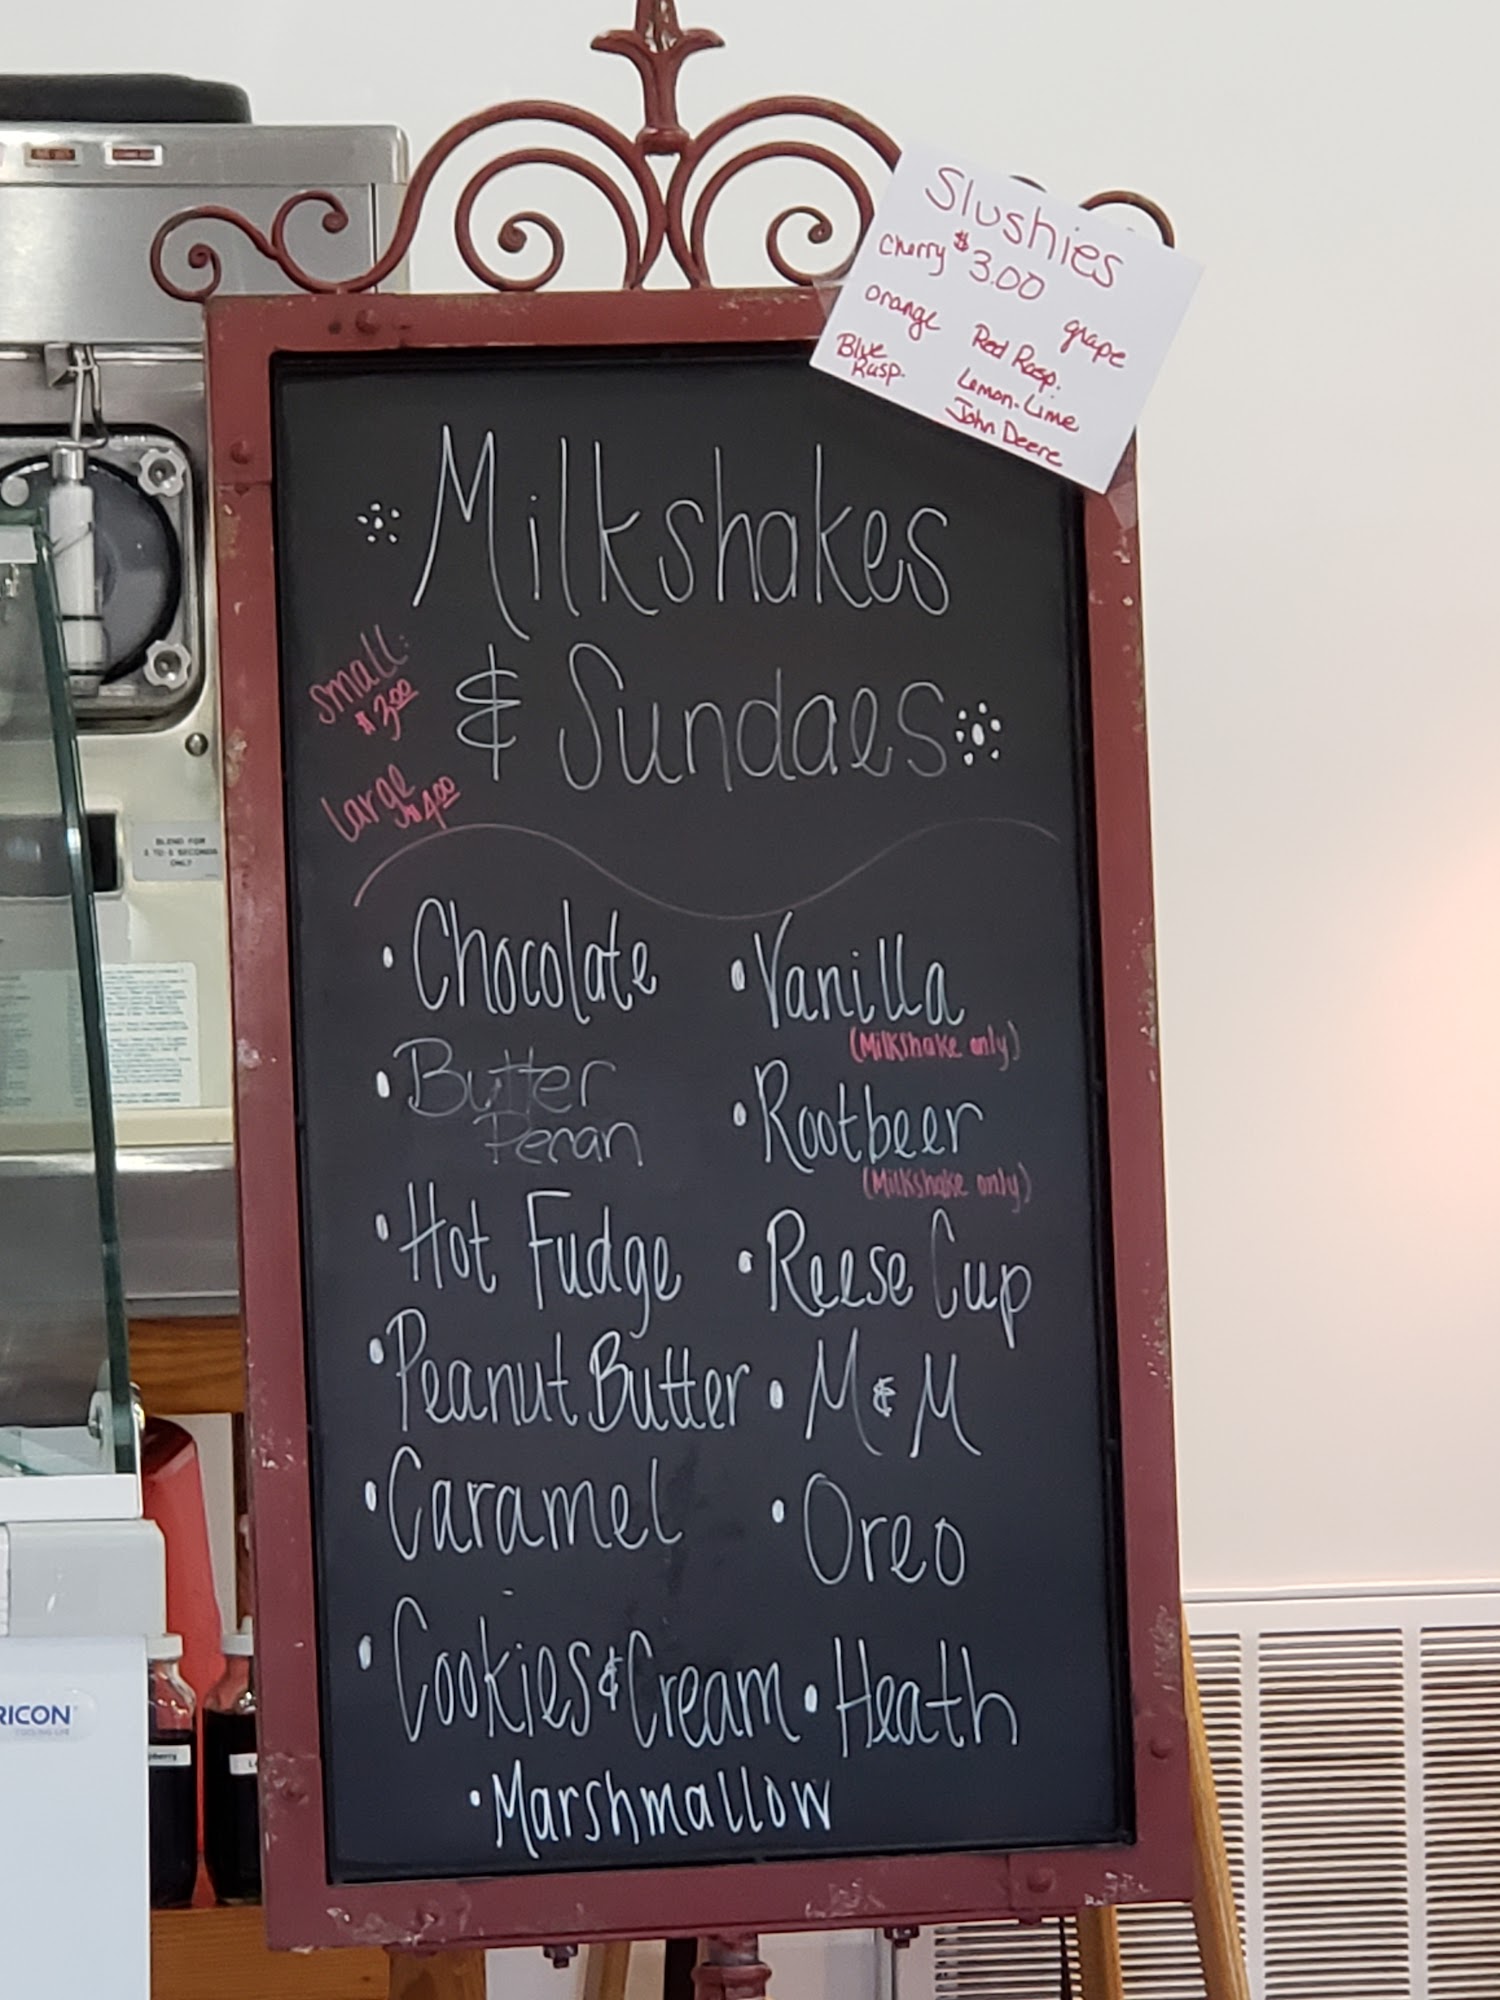 Slushies
Cherry $3.00 grape
orange Red Rasp.
Blue Rasp. Lemon-Lime
John Deere
Milkshakes
& Sundaes
Small:
$3.00
Large
$4.00
• Chocolate
• Vanilla
(Milkshake only)
• Butter
Pecan
• Rootbeer
(Milkshake only)
• Hot Fudge
• Reese Cup
• Peanut Butter
• M & M
• Caramel
• Oreo
• Cookies & Cream
• Heath
• Marshmallow
BLEND FOR
ONLY
RICON